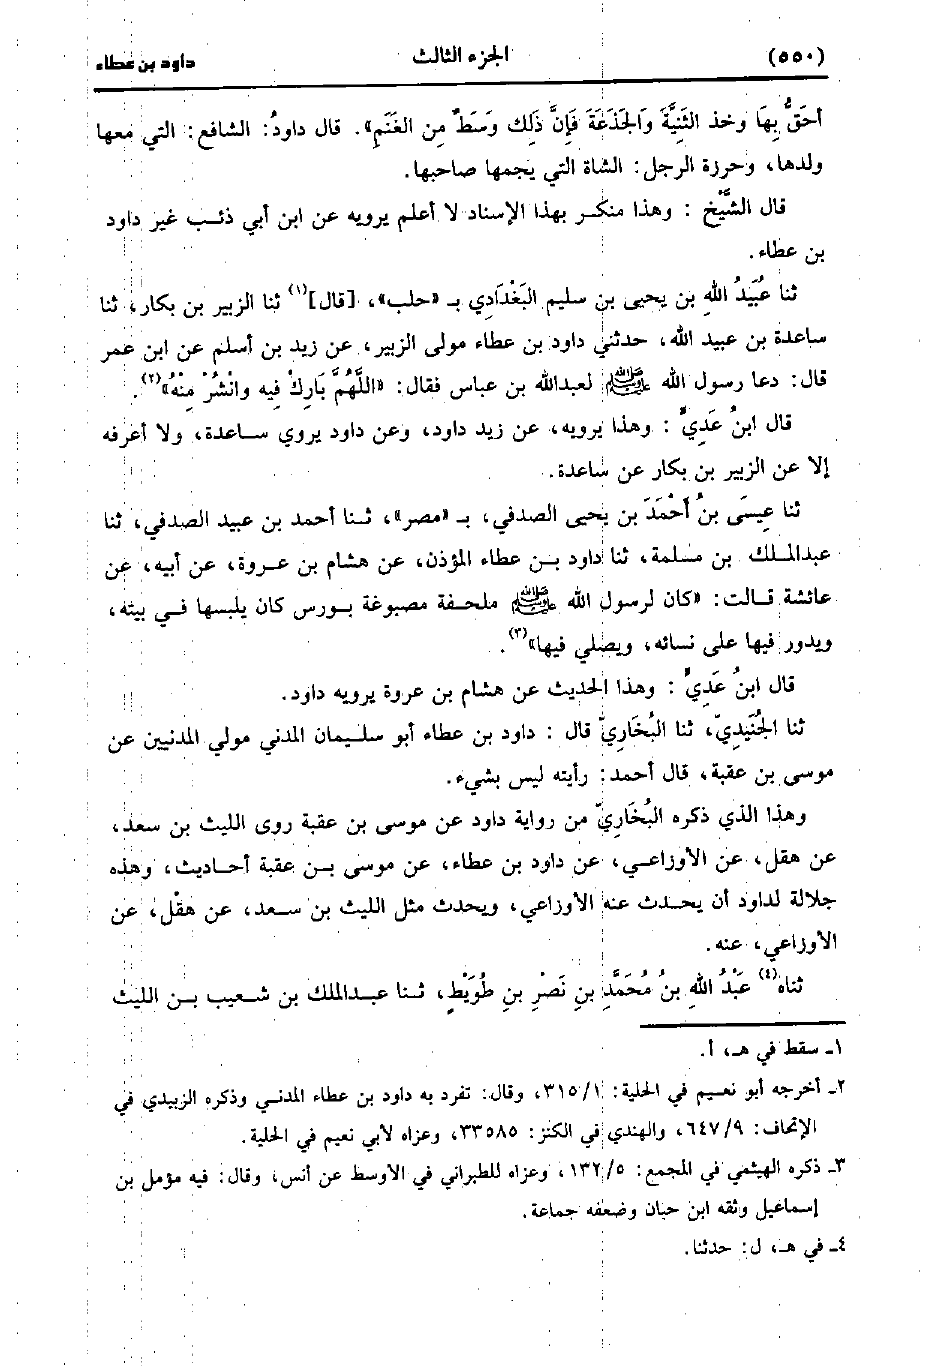 (٥٥٠) الجزء الثالث داود بن عطاء
أحَقُّ بِهَا وخذ الثَنِيَّةَ وَالجَذَعَةَ فَإِنَّ ذَلِكَ وَسَطٌ مِن الغَنَمِ». قال داودُ: الشافع: التي معها
ولدها، وحرزة الرجل: الشاة التي يجمها صاحبها.
قال الشَّيْخ : وهذا منكر بهذا الإسناد لا أعلم يرويه عن ابن أبي ذئب غير داود
بن عطاء.
ثنا عُبَيدُ اللهِ بن يحيى بن سليم البَغْدَادِي بـ «حلب»، [قال](١) ثنا الزبير بن بكار، ثنا
ساعدة بن عبيد الله، حدثني داود بن عطاء مولى الزبير، عن زيد بن أسلم عن ابن عمر
قال: دعا رسول الله ﷺ لعبدالله بن عباس فقال: «اللَّهُمَّ بَارِكْ فِيه وانْشُرْ مِنْهُ»(٢).
قال ابنُ عَدِيٌّ : وهذا يرويه، عن زيد داود، وعن داود يروي ساعدة، ولا أعرفه
إلا عن الزبير بن بكار عن ساعدة.
ثنا عِيسَى بنُ أَحْمَدَ بن يحيى الصدفي، بـ «مصر»، ثنا أحمد بن عبيد الصدفي، ثنا
عبدالملك بن مسلمة، ثنا داود بن عطاء المؤذن، عن هشام بن عروة، عن أبيه، عن
عائشة قالت: «كان لرسول الله ﷺ ملحفة مصبوغة بورس كان يلبسها في بيته،
ويدور فيها على نسائه، ويصلي فيها»(٣).
قال ابنُ عَدِيٌّ : وهذا الحديث عن هشام بن عروة يرويه داود.
ثنا الجُنَيدِيّ، ثنا البُخَارِيّ قال : داود بن عطاء أبو سليمان المدني مولي المدنيين عن
موسى بن عقبة، قال أحمد: رأيته ليس بشيء.
وهذا الذي ذكره البُخَارِيّ من رواية داود عن موسى بن عقبة روى الليث بن سعد،
عن هقل، عن الأوزاعي، عن داود بن عطاء، عن موسى بن عقبة أحاديث، وهذه
جلالة لداود أن يحدث عنه الأوزاعي، ويحدث مثل الليث بن سعد، عن هقْل، عن
الأوزاعي، عنه.
ثناه(٤) عَبْدُ اللهِ بنُ مُحَمَّدِ بنِ نَصْرِ بنِ طُوَيْطٍ، ثنا عبدالملك بن شعيب بن الليث
١ـ سقط في هـ، أ.
٢ـ أخرجه أبو نعيم في الحلية: ٣١٥/١، وقال: تفرد به داود بن عطاء المدني وذكره الزبيدي في
الإتحاف: ٦٤٧/٩، والهندي في الكنز: ٣٣٥٨٥، وعزاه لأبي نعيم في الحلية.
٣ـ ذكره الهيثمي في المجمع: ١٣٢/٥، وعزاه للطبراني في الأوسط عن أنس، وقال: فيه مؤمل بن
إسماعيل وثقه ابن حبان وضعفه جماعة.
٤ـ في هـ، ل: حدثنا.